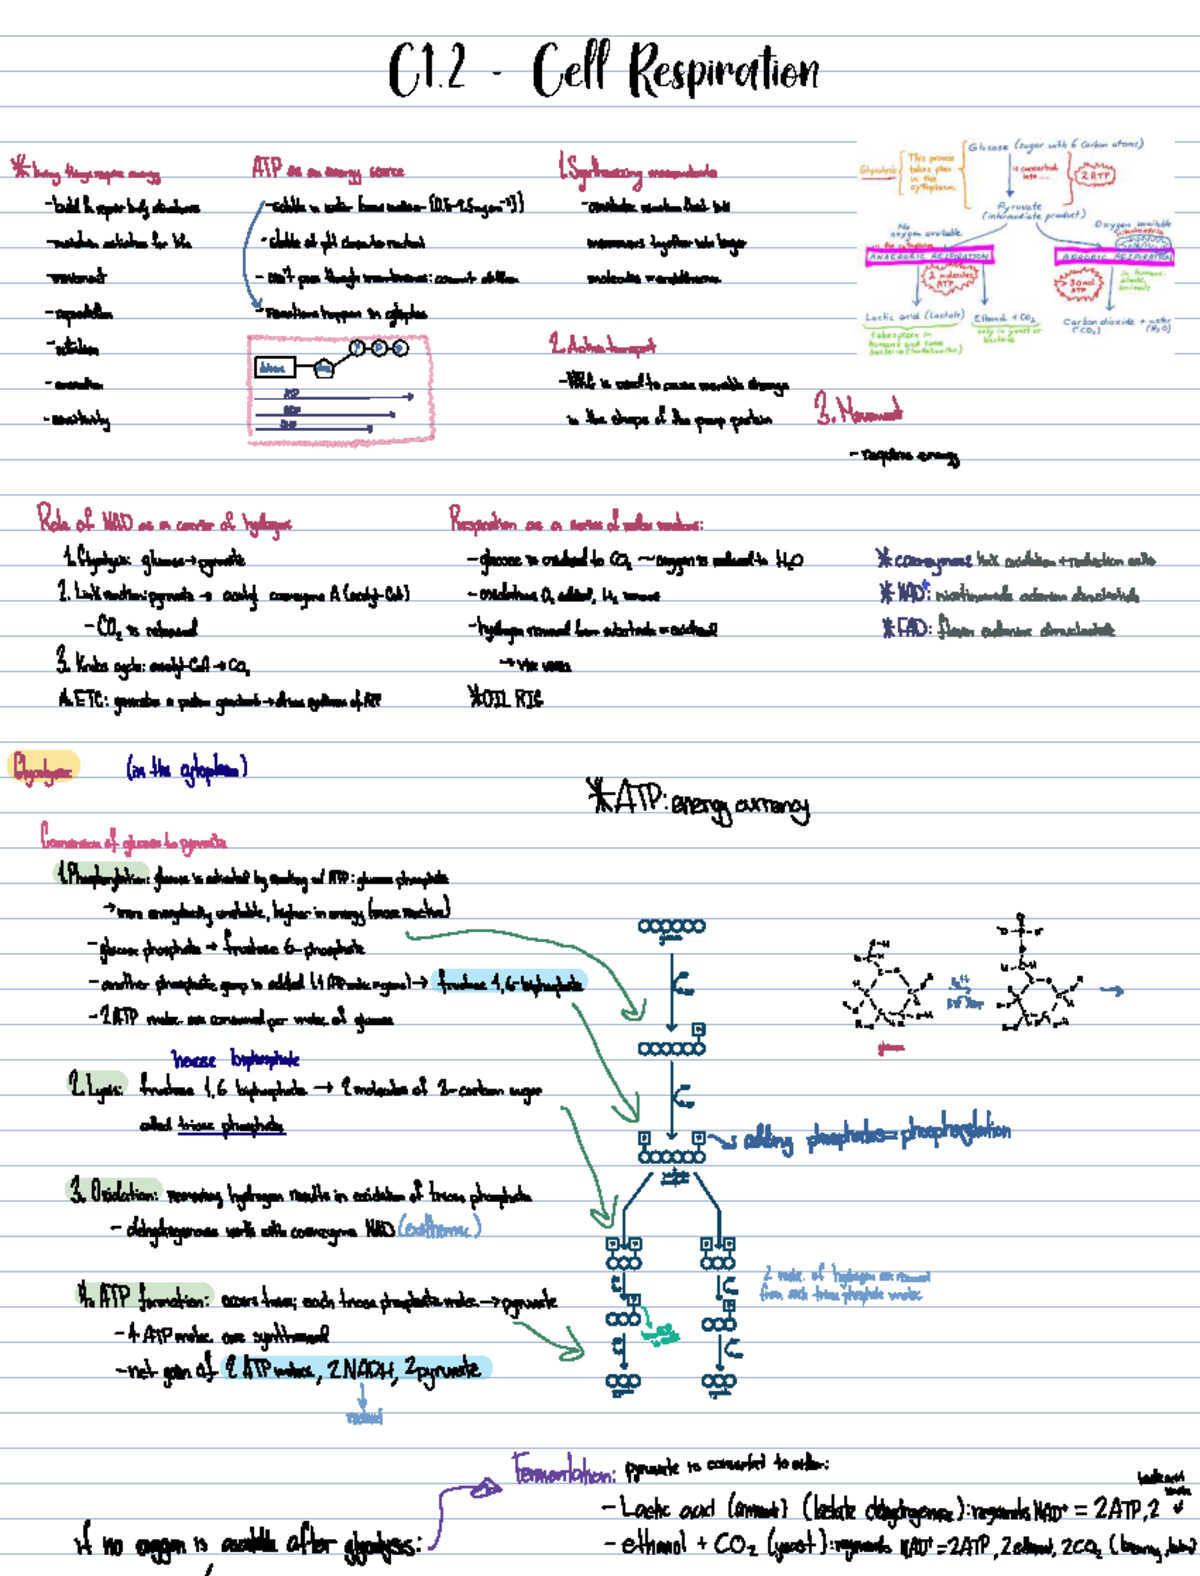 C1.2 - Cell Respiration
* living things require energy
- build & repair body structures
- maintain activities for life
movement
- reproduction
- nutrition
- excretion
- sensitivity
ATP as an energy source
- stable at pH close to neutral
- can't pass through membranes:
- reactions happen in cytoplasm
ATP
ADP
AMP
1. Synthesizing macromolecules
monomers together into larger
molecules
2. Active transport
- ATP is used to cause reversible change
in the shape of the pump protein
3. Movement
- requires energy
Glucose (sugar with 6 Carbon atoms)
Glycolysis
This process takes place in the cytoplasm
is converted into...
2 ATP
Pyruvate
(intermediate product)
No oxygen available
in the cytoplasm
Oxygen available
mitochondria
ANAEROBIC RESPIRATION
AEROBIC RESPIRATION
2 molecules ATP
>30 mol ATP
in humans, plants, animals
Lactic acid (Lactate)
takes place in humans and some bacteria (lactobacillus)
Ethanol + CO2
only in yeast or bacteria
Carbon dioxide + water
(CO2) (H2O)
Role of NAD as a carrier of hydrogen
1. Glycolysis: glucose → pyruvate
2. Link reaction: pyruvate → acetyl coenzyme A (acetyl-CoA)
- CO₂ is released
3. Krebs cycle: acetyl-CoA → CO₂
4. ETC: generates a proton gradient → drives synthesis of ATP
Respiration as a series of redox reactions:
- glucose is oxidised to CO₂ ~ oxygen is reduced to H₂O
- oxidation: O₂ added, H₂ remove
- hydrogen removed from substrate = oxidised
→ vice versa
* OIL RIG
* coenzymes: link oxidation + reduction
* NAD⁺: nicotinamide adenine dinucleotide
* FAD: flavin adenine dinucleotide
Glycolysis (in the cytoplasm)
* ATP: energy currency
Conversion of glucose to pyruvate
1. Phosphorylation: glucose is activated by reacting w/ ATP: glucose phosphate
→ more energetically unstable, higher in energy (more reactive)
- glucose phosphate → fructose 6-phosphate
- another phosphate group is added (1 ATP molec again) → fructose 1,6-biphosphate
- 2 ATP molec. are consumed per molec. of glucose
hexose biphosphate
2. Lysis: fructose 1,6 biphosphate → 2 molecules of 3-carbon sugar
called triose phosphate
3. Oxidation: removing hydrogen results in oxidation of triose phosphate
- dehydrogenase works with coenzyme NAD (exothermic)
4. ATP formation: occurs twice; each triose phosphate molec. → pyruvate
- 4 ATP molec. are synthesised
- net gain of 2 ATP molecs, 2 NADH, 2 pyruvate
reduced
glucose
glucose
adding phosphates = phosphorylation
2 molec. of hydrogen are removed
from each triose phosphate molec.
if no oxygen is available after glycolysis:
Fermentation: pyruvate is converted to either:
- Lactic acid (animals) (lactate dehydrogenase): regenerates NAD⁺ = 2ATP, 2
- ethanol + CO₂ (yeast): regenerates NAD⁺ = 2ATP, 2 ethanol, 2CO₂